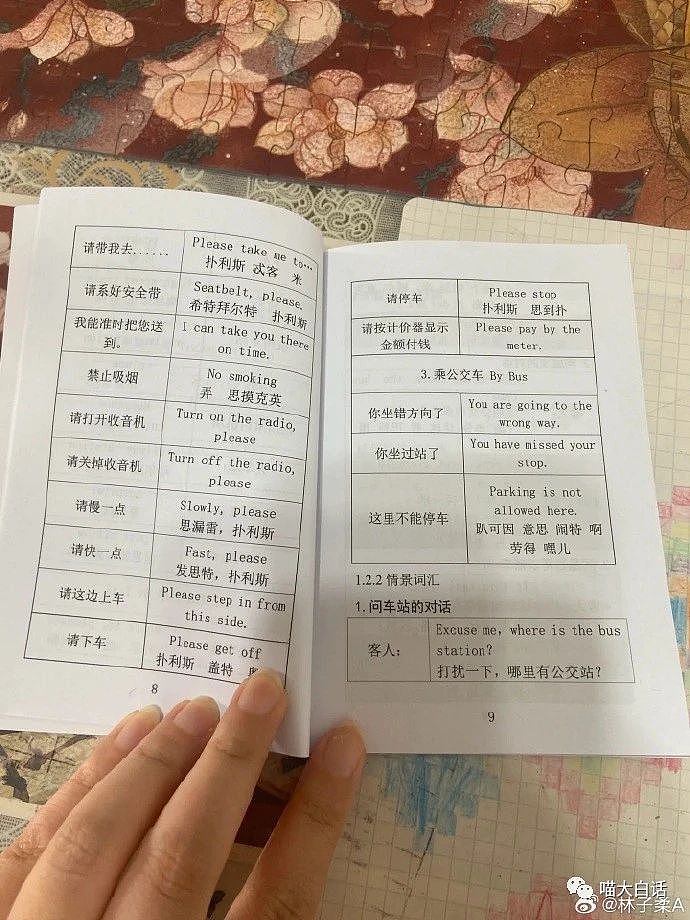 请带我去......
Please take me to…
扑利斯 忒客 米
请系好安全带
Seatbelt, please.
希特拜尔特 扑利斯
我能准时把您送
到。
I can take you there
on time.
禁止吸烟
No smoking
弄 思摸克英
请打开收音机
Turn on the radio,
please
请关掉收音机
Turn off the radio,
please
请慢一点
Slowly, please
思漏雷，扑利斯
请快一点
Fast, please
发思特，扑利斯
请这边上车
Please step in from
this side.
请下车
Please get off
扑利斯 盖特
8
请停车
Please stop
扑利斯 思到扑
请按计价器显示
金额付钱
Please pay by the
meter.
3.乘公交车 By Bus
你坐错方向了
You are going to the
wrong way.
你坐过站了
You have missed your
stop.
这里不能停车
Parking is not
allowed here.
趴可因 意思 闹特 啊
劳得 嘿儿
1.2.2 情景词汇
1.问车站的对话
客人：
Excuse me, where is the bus
station?
打扰一下，哪里有公交站？
9
喵大白话
@林子柔A